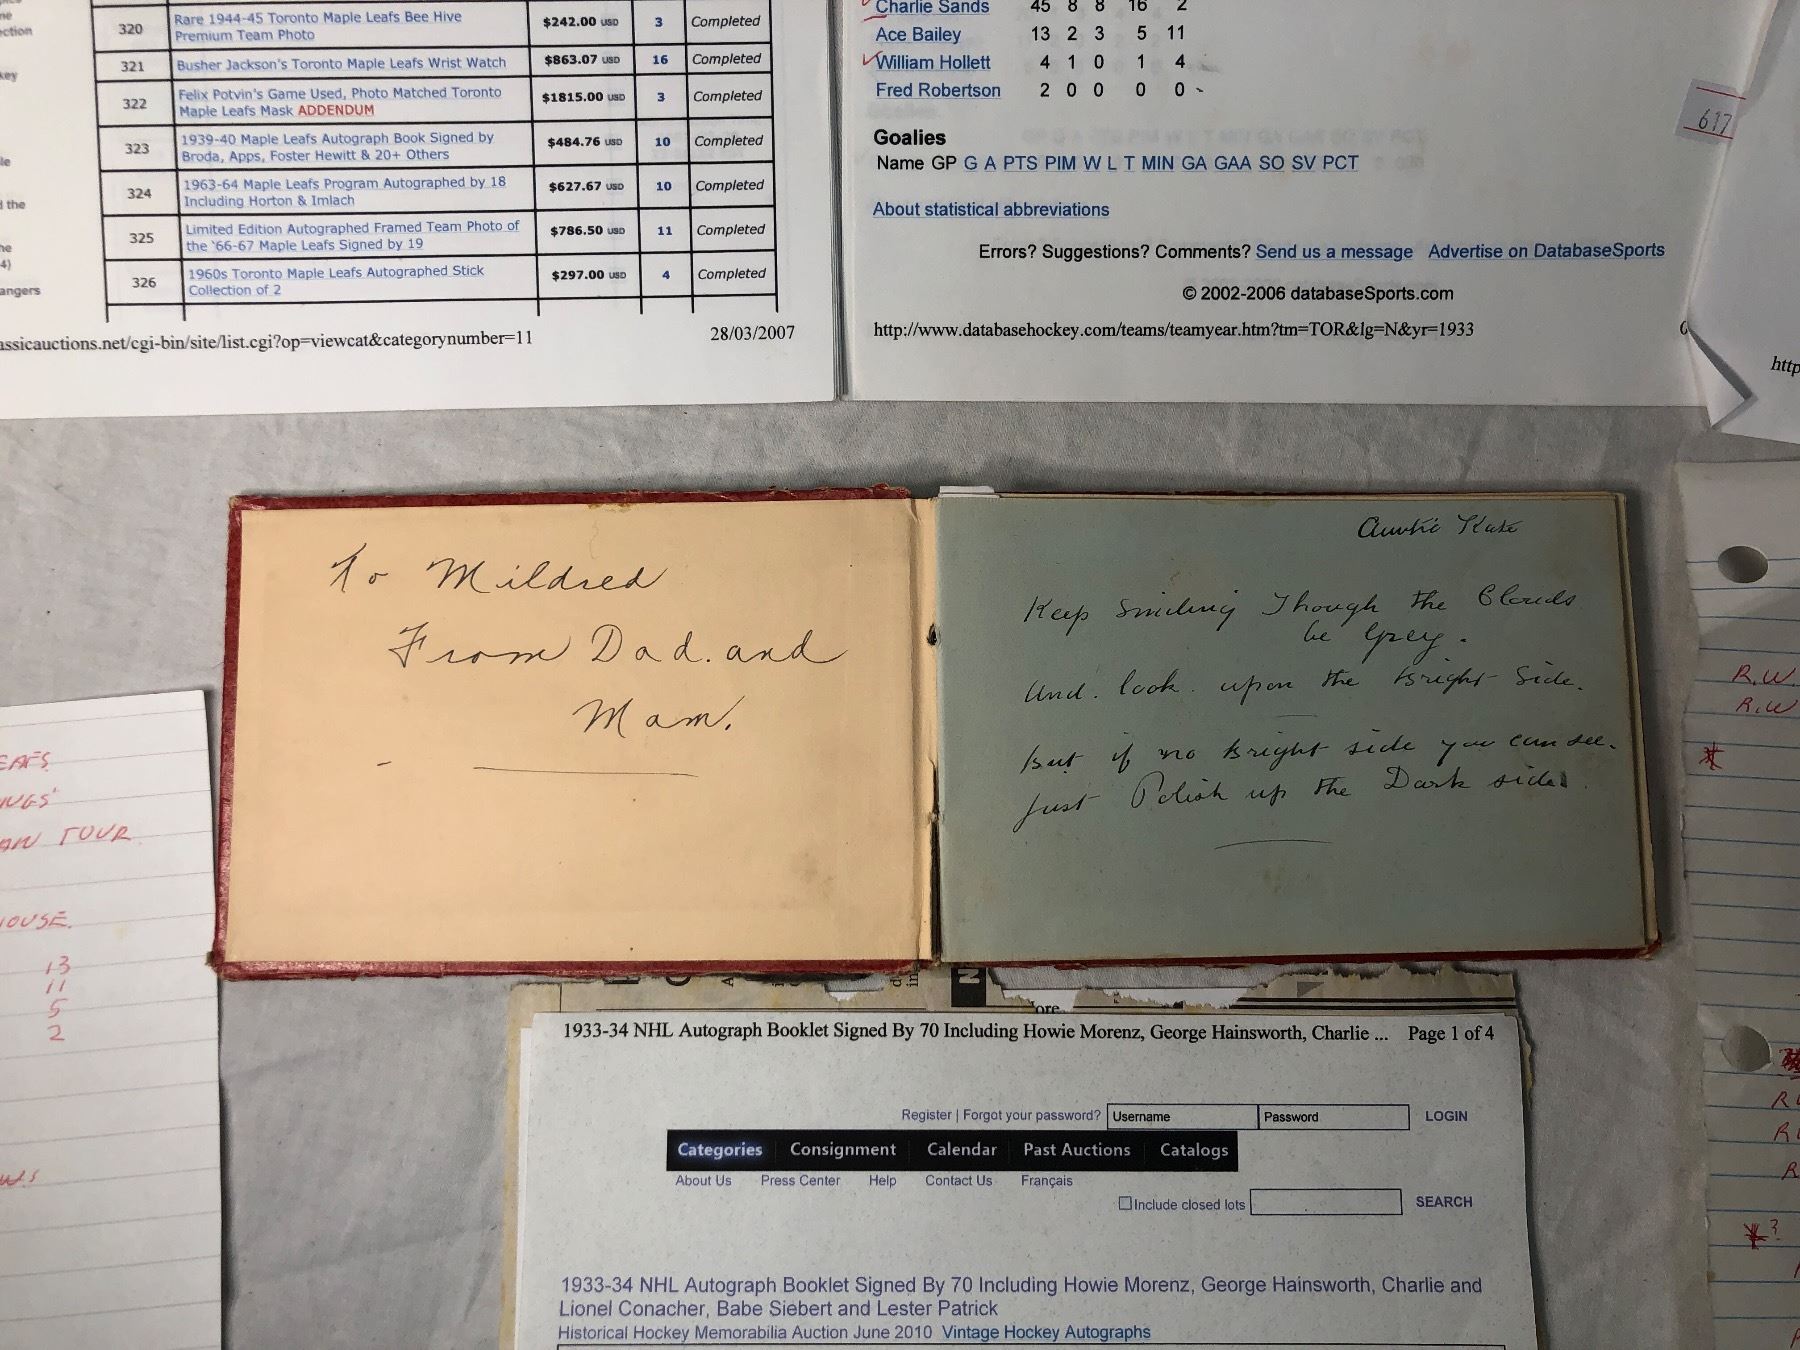 320 Rare 1944-45 Toronto Maple Leafs Bee Hive $242.00 USD 3 Completed
Premium Team Photo
321 Busher Jackson's Toronto Maple Leafs Wrist Watch $863.07 USD 16 Completed
322 Felix Potvin's Game Used, Photo Matched Toronto $1815.00 USD 3 Completed
Maple Leafs Mask ADDENDUM
323 1939-40 Maple Leafs Autograph Book Signed by $484.76 USD 10 Completed
Broda, Apps, Foster Hewitt & 20+ Others
324 1963-64 Maple Leafs Program Autographed by 18 $627.67 USD 10 Completed
Including Horton & Imlach
325 Limited Edition Autographed Framed Team Photo of $786.50 USD 11 Completed
the '66-67 Maple Leafs Signed by 19
326 1960s Toronto Maple Leafs Autographed Stick $297.00 USD 4 Completed
Collection of 2
assicauctions.net/cgi-bin/site/list.cgi?op=viewcat&categorynumber=11 28/03/2007
the
4)
angers
Charlie Sands 45 8 8 16 2
Ace Bailey 13 2 3 5 11
William Hollett 4 1 0 1 4
Fred Robertson 2 0 0 0 0
Goalies
Name GP G A PTS PIM W L T MIN GA GAA SO SV PCT
About statistical abbreviations
Errors? Suggestions? Comments? Send us a message Advertise on DatabaseSports
© 2002-2006 databaseSports.com
http://www.databasehockey.com/teams/teamyear.htm?tm=TOR&lg=N&yr=1933
617
http
To Mildred
From Dad. and
Mam.
Auntie Kate
Keep Smiling Though the Clouds
be Grey.
And. look. upon the Bright Side.
But if no Bright side you can see.
Just Polish up the Dark side.
EAFS
NGS'
AN TOUR
OUSE.
13
11
5
2
R.W.
R.W
1933-34 NHL Autograph Booklet Signed By 70 Including Howie Morenz, George Hainsworth, Charlie ... Page 1 of 4
Register | Forgot your password? Username Password LOGIN
Categories Consignment Calendar Past Auctions Catalogs
About Us Press Center Help Contact Us Français
Include closed lots SEARCH
1933-34 NHL Autograph Booklet Signed By 70 Including Howie Morenz, George Hainsworth, Charlie and
Lionel Conacher, Babe Siebert and Lester Patrick
Historical Hockey Memorabilia Auction June 2010 Vintage Hockey Autographs